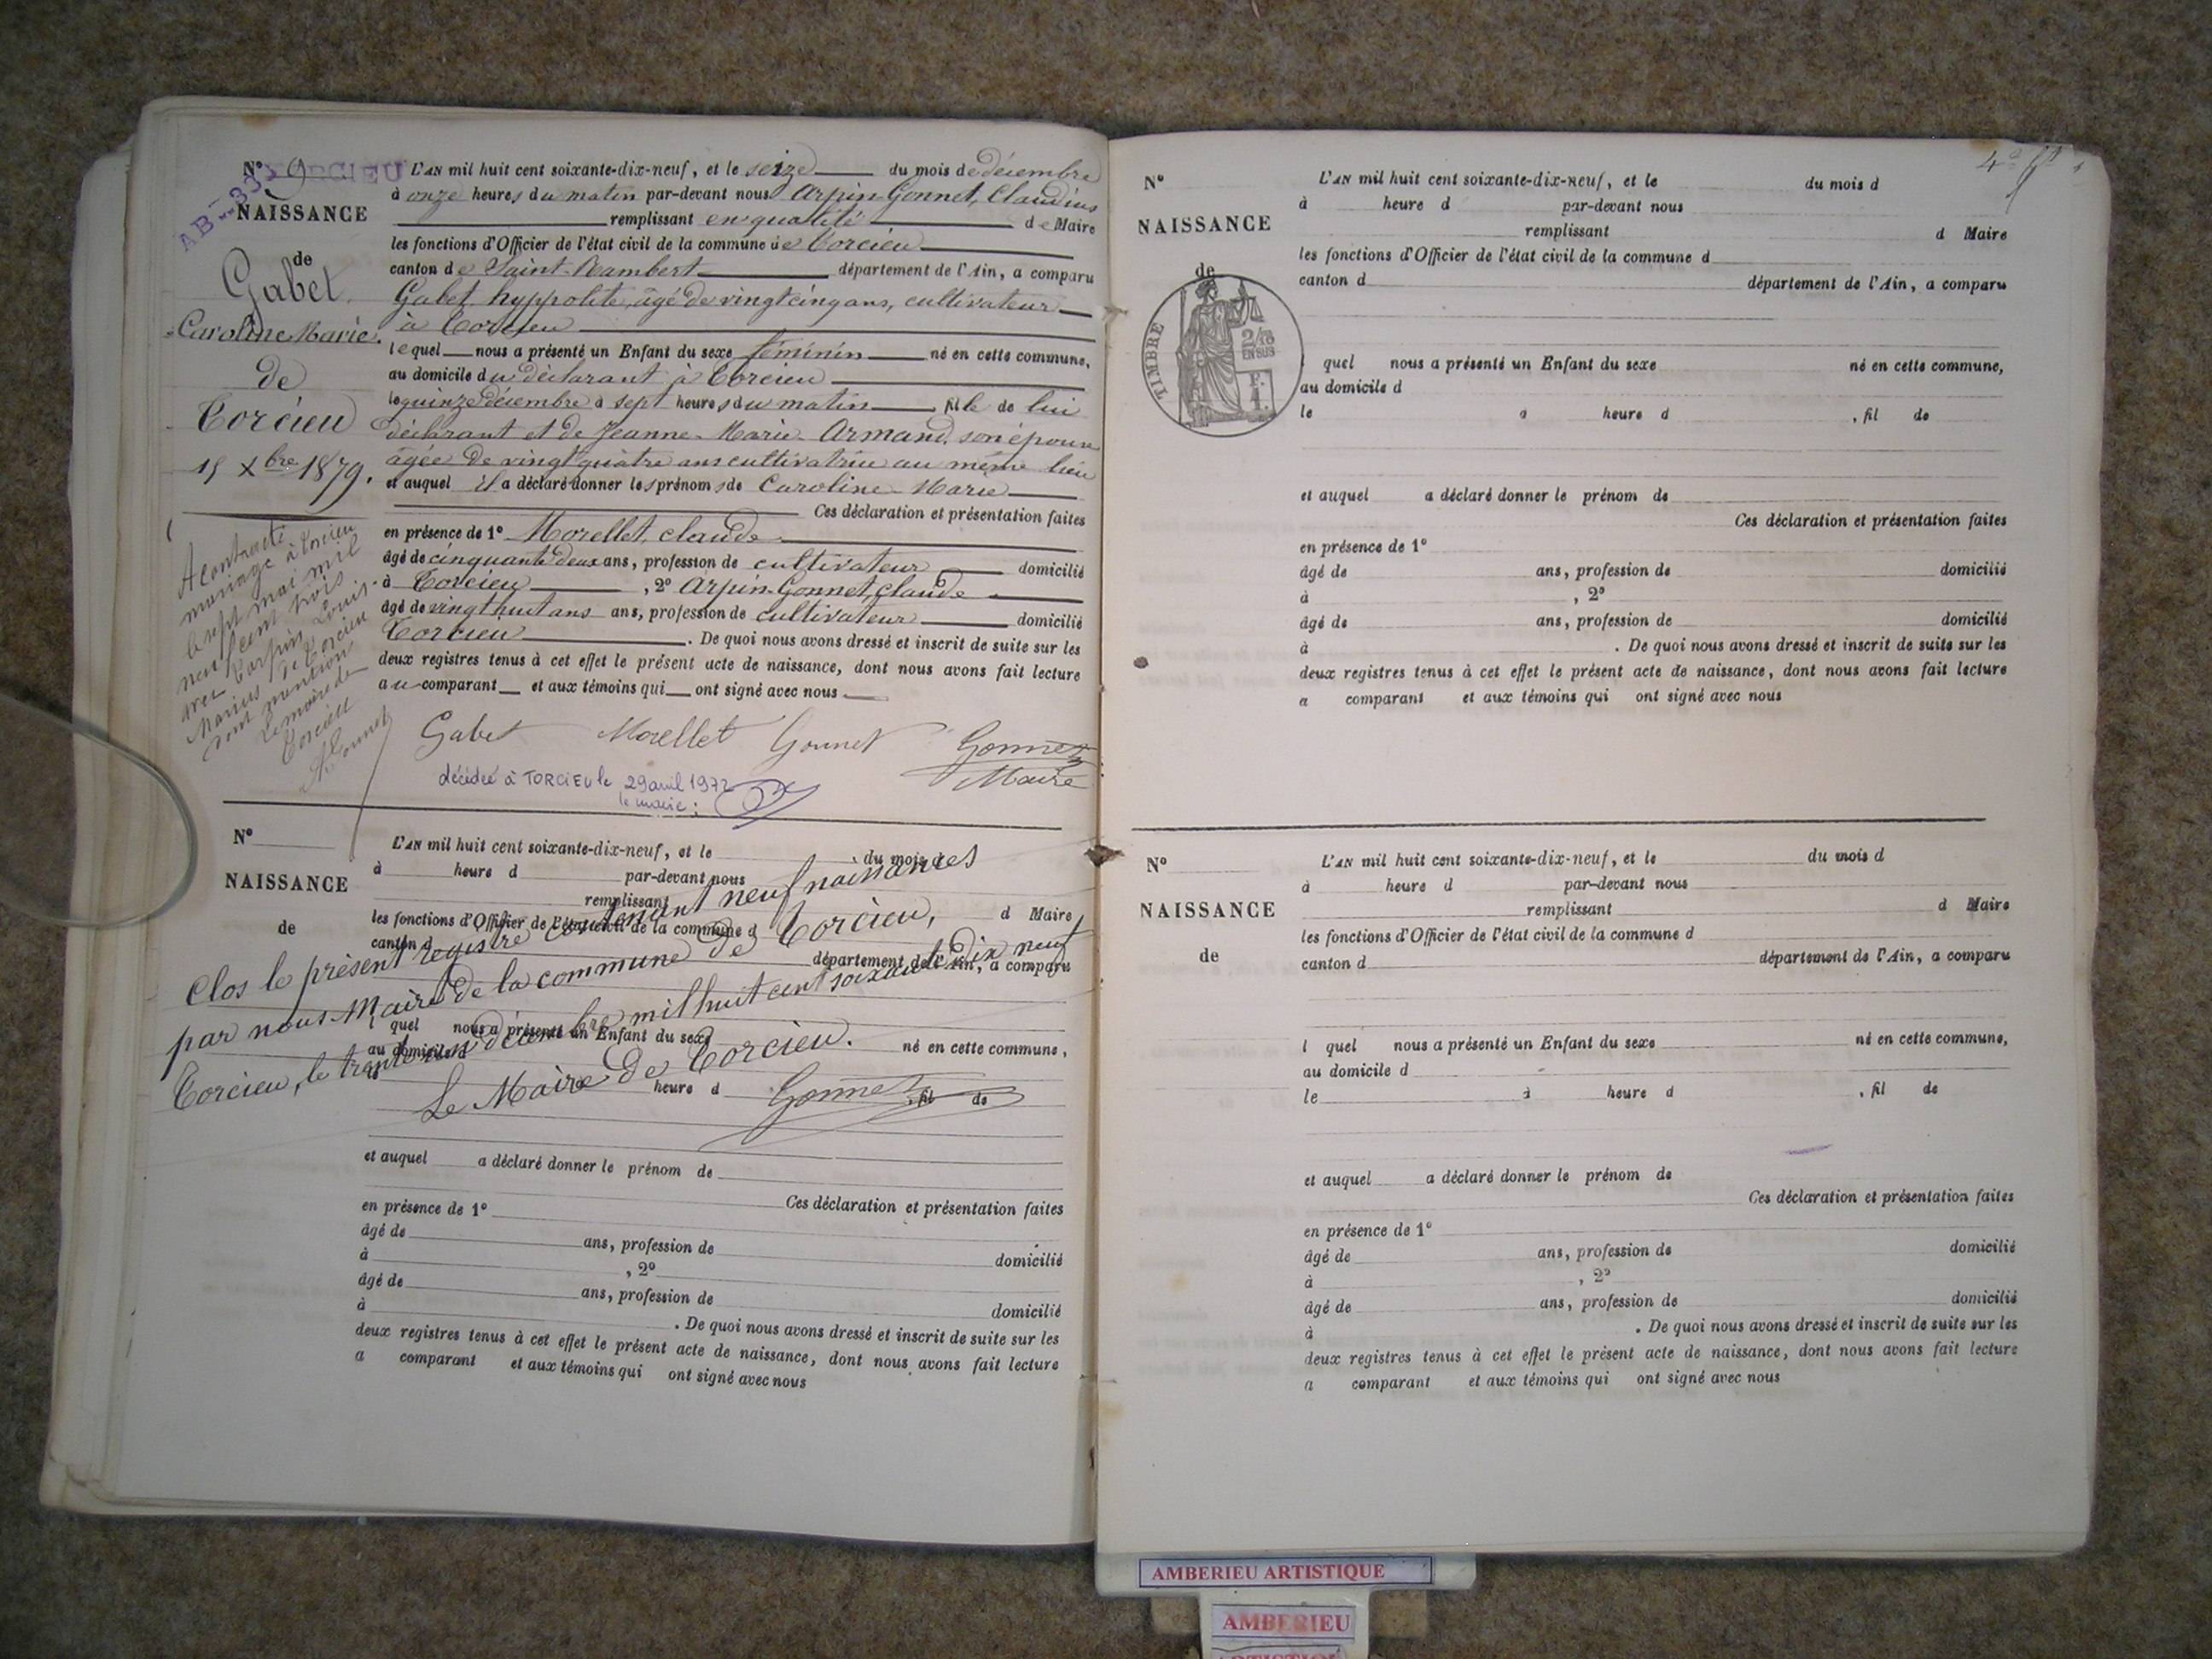 N° 9 TORCIEU
AB-33
NAISSANCE
de
Gabet
Caroline Marie.
de
Torcieu
15 Xbre 1879.
L'AN mil huit cent soixante-dix-neuf, et le seize du mois de décembre
à onze heures du matin par-devant nous Arpin-Gonnet, Claudius
remplissant en qualité de Maire
les fonctions d'Officier de l'état civil de la commune de Torcieu
canton de Saint-Rambert département de l'Ain, a comparu
Gabet hyppolite, âgé de vingt cinq ans, cultivateur
à Torcieu
lequel nous a présenté un Enfant du sexe féminin né en cette commune,
au domicile du déclarant à Torcieu
le quinze décembre à sept heures du matin, fille de lui
déclarant et de Jeanne-Marie Armand, son épouse
âgée de vingt quatre ans cultivatrice au même lieu
et auquel il a déclaré donner les prénoms de Caroline-Marie
Ces déclaration et présentation faites
en présence de 1° Morellet, claude
âgé de cinquante deux ans, profession de cultivateur domicilié
à Torcieu, 2° Arpin-Gonnet, claude
âgé de vingt huit ans ans, profession de cultivateur domicilié
Torcieu. De quoi nous avons dressé et inscrit de suite sur les
deux registres tenus à cet effet le présent acte de naissance, dont nous avons fait lecture
au comparant et aux témoins qui ont signé avec nous
A contracté
mariage à Torcieu
le sept mai mil
neuf cent trois
avec Tarpin Louis
Marius de Torcieu
dont mention
Le maire de
Torcieu
Gonnet
Gabet Morellet Gonnet Gonnet
Maire
décédée à TORCIEU le 29 avril 1972
le maire:
N°
NAISSANCE
de
L'AN mil huit cent soixante-dix-neuf, et le du mois d
à heure d par-devant nous
remplissant
les fonctions d'Officier de l'état civil de la commune d d Maire
canton d département de l'Ain, a comparu
Clos le présent registre contenant neuf naissances
par nous Maire de la commune de Torcieu,
Torcieu, le trente un décembre mil huit cent soixante dix neuf
Le Maire de Torcieu.
Gonnet
l quel nous a présenté un Enfant du sexe né en cette commune,
au domicile d
heure d , fil de
et auquel a déclaré donner le prénom de
Ces déclaration et présentation faites
en présence de 1°
âgé de ans, profession de domicilié
à , 2°
âgé de ans, profession de domicilié
à . De quoi nous avons dressé et inscrit de suite sur les
deux registres tenus à cet effet le présent acte de naissance, dont nous avons fait lecture
a comparant et aux témoins qui ont signé avec nous
N°
NAISSANCE
de
TIMBRE
2/10
EN SUS
L'AN mil huit cent soixante-dix-neuf, et le du mois d
à heure d par-devant nous
remplissant d Maire
les fonctions d'Officier de l'état civil de la commune d
canton d département de l'Ain, a comparu
quel nous a présenté un Enfant du sexe né en cette commune,
au domicile d
le à heure d , fil de
et auquel a déclaré donner le prénom de
Ces déclaration et présentation faites
en présence de 1°
âgé de ans, profession de domicilié
à , 2°
âgé de ans, profession de domicilié
à . De quoi nous avons dressé et inscrit de suite sur les
deux registres tenus à cet effet le présent acte de naissance, dont nous avons fait lecture
a comparant et aux témoins qui ont signé avec nous
N°
NAISSANCE
de
L'AN mil huit cent soixante-dix-neuf, et le du mois d
à heure d par-devant nous
remplissant d Maire
les fonctions d'Officier de l'état civil de la commune d
canton d département de l'Ain, a comparu
l quel nous a présenté un Enfant du sexe né en cette commune,
au domicile d
le à heure d , fil de
et auquel a déclaré donner le prénom de
Ces déclaration et présentation faites
en présence de 1°
âgé de ans, profession de domicilié
à , 2°
âgé de ans, profession de domicilié
à . De quoi nous avons dressé et inscrit de suite sur les
deux registres tenus à cet effet le présent acte de naissance, dont nous avons fait lecture
a comparant et aux témoins qui ont signé avec nous
AMBERIEU ARTISTIQUE
AMBERIEU
ARTISTIQUE